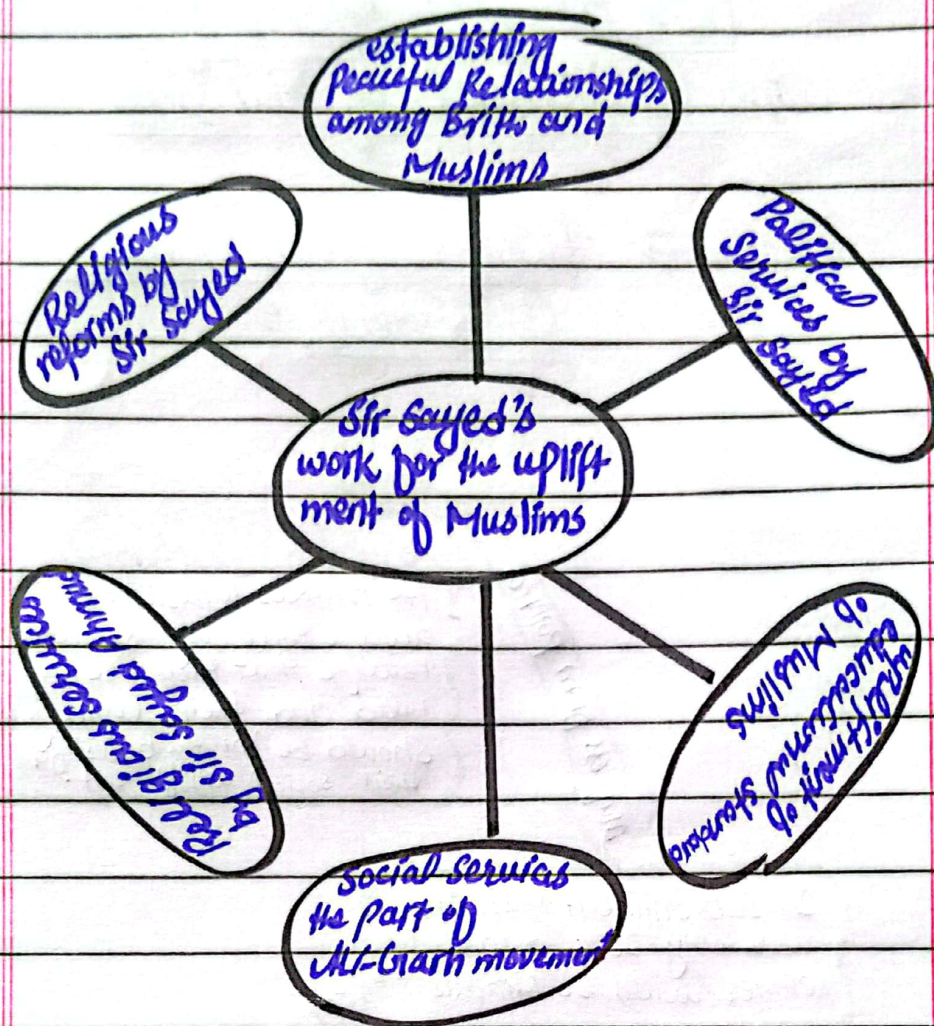 establishing
Peaceful Relationships
among Brith and
Muslims
Religious
reforms by
Sir Sayed
Political
Services by
Sir Sayed
Sir Sayed's
work for the uplift
ment of Muslims
Religious Services
by Sir Sayed Ahmad
upliftment of
educational standard
of Muslims
Social Services
the part of
Ali-Garh movement